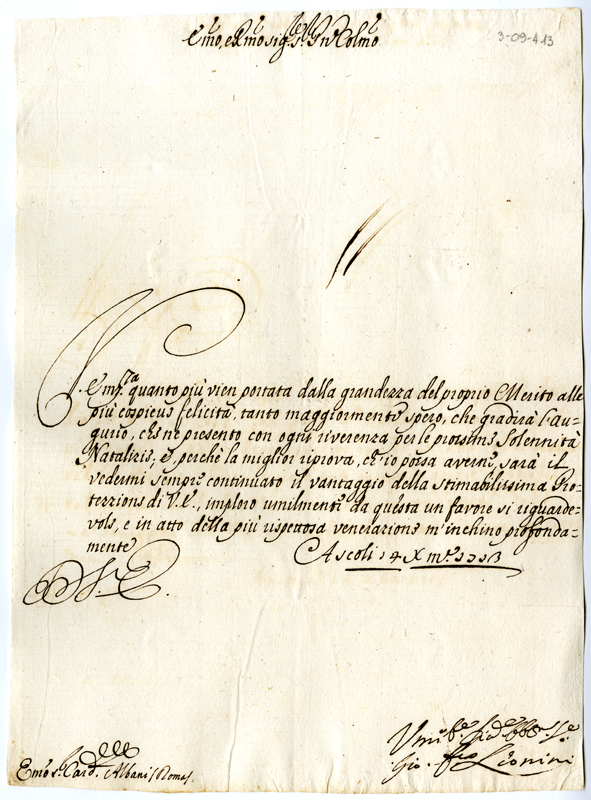 3-09-413
Emo, e Rmo Sig.re Sig.re Pn Colmo
V. Em.za quanto più vien portata dalla grandezza del proprio Merito alle
più cospicue felicità, tanto maggiormente spero, che gradirà l'au=
gurio, che ne presento con ogni riverenza per le prossime Solennità
Natalizie, e perchè la miglior riprova, ch'io possa averne, sarà il
vedermi sempre continuato il vantaggio della stimabilissima Pro=
tezzione di V. E., imploro umilmente da questa un favore sì riguarde=
vole, e in atto della più rispettosa venerazione m'inchino profonda=
mente
Ascoli 14 Xmbre
D. V. E.
Emo Sr. Card. Albani / Roma /
Umo
Gio. Fran.co Leonini